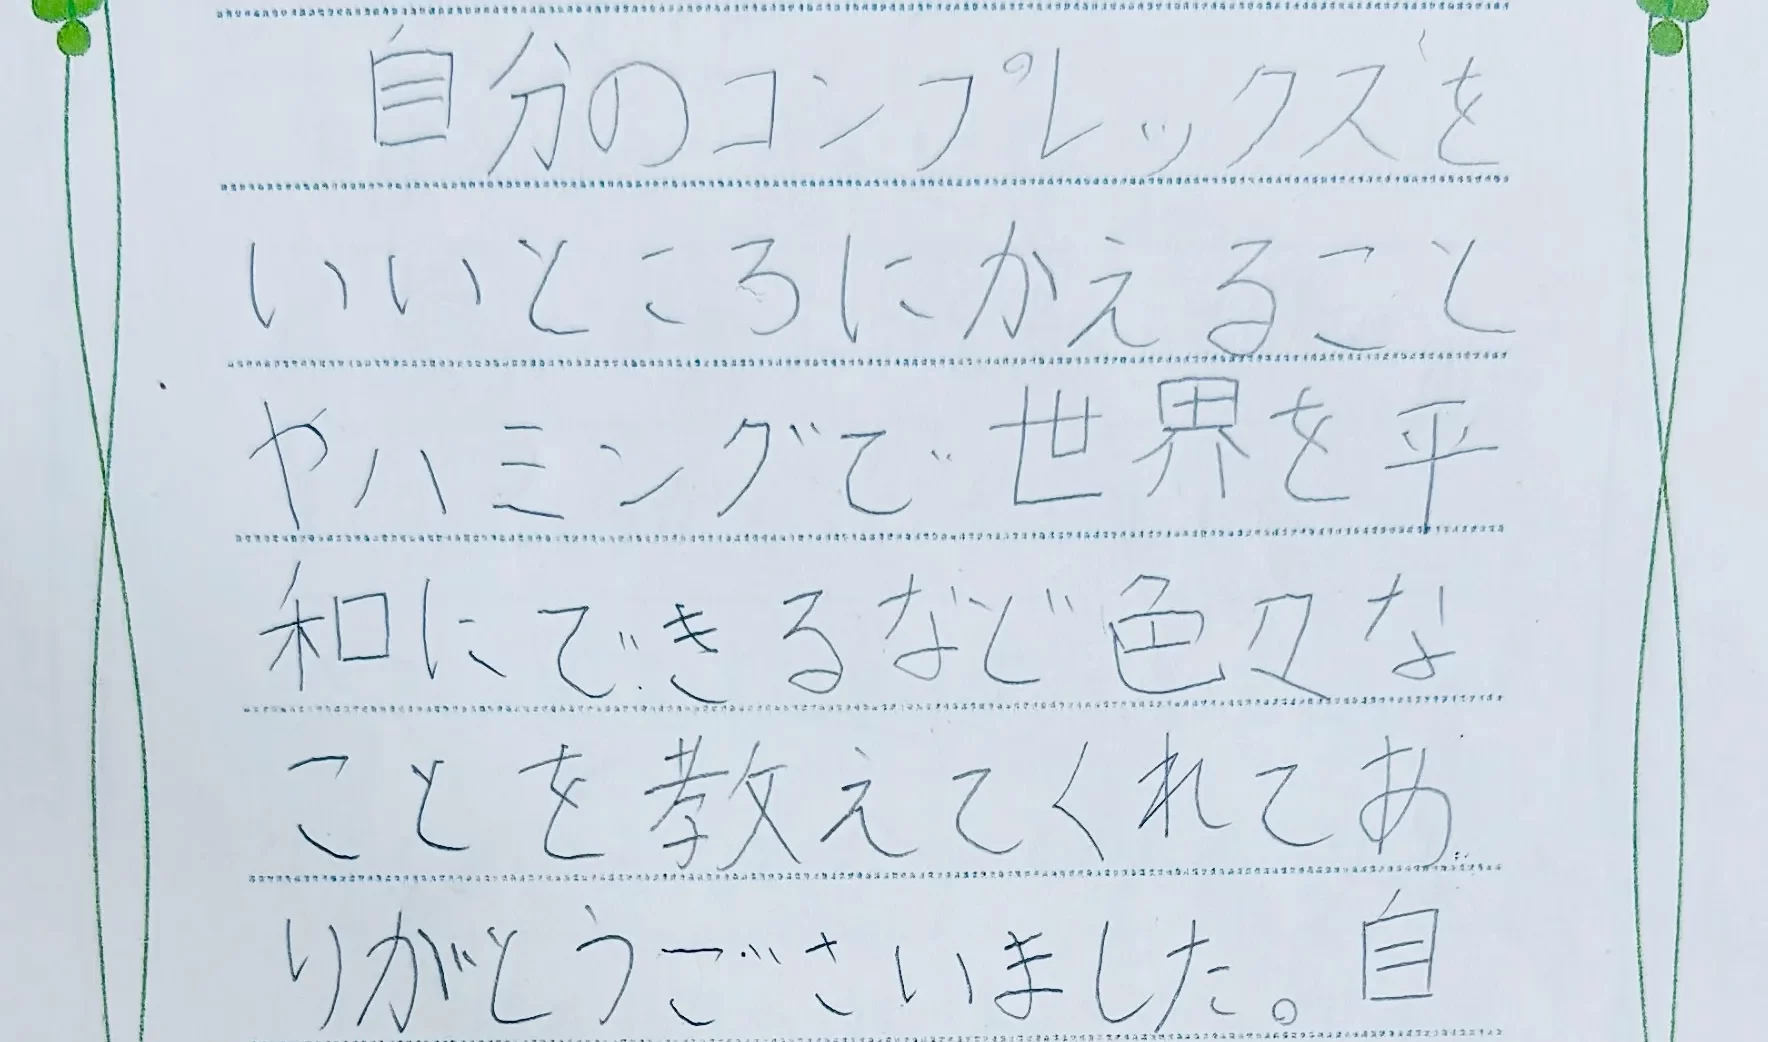 自分のコンプレックスを
いいところにかえること
やハミングで世界を平
和にできるなど色々な
ことを教えてくれてあ
りがとうございました。自